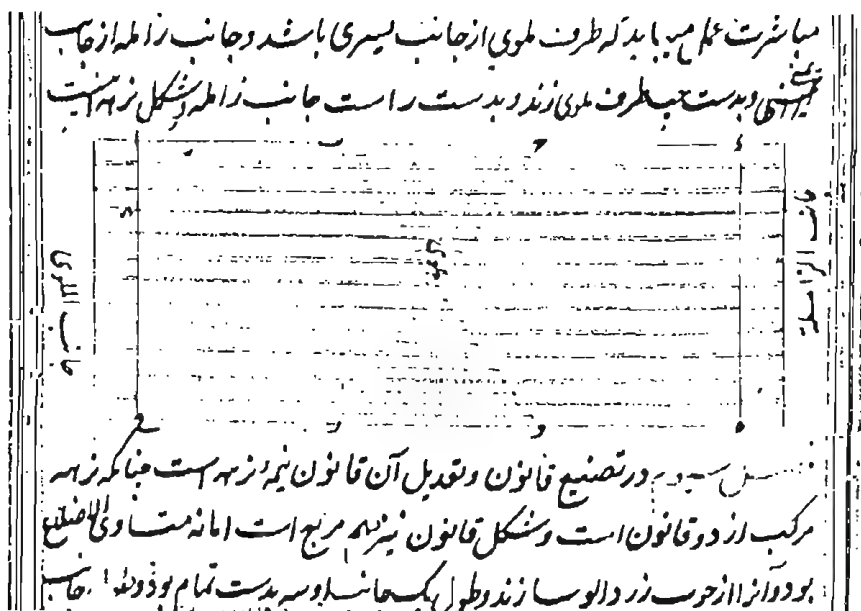 مباشرت عمل می باید که طرف ملوی از جانب یسری باشد و جانب زامله از جانب
یمنی و بدست چپ طرف ملوی زند و بدست راست جانب زامله و شکل نزهه اینست
جانب الزاملة
جانب الملوی
در تصنیع قانون و تعدیل آن قانون نیمۀ نزهه است چنانکه نزهه
مرکب از دو قانون است و شکل قانون نیز هم مربع است اما نه متساوی الاضلاع
بود و آنرا از چوب زردالو سازند و طول یک جانب او سه بدست تمام بود و طول جانب